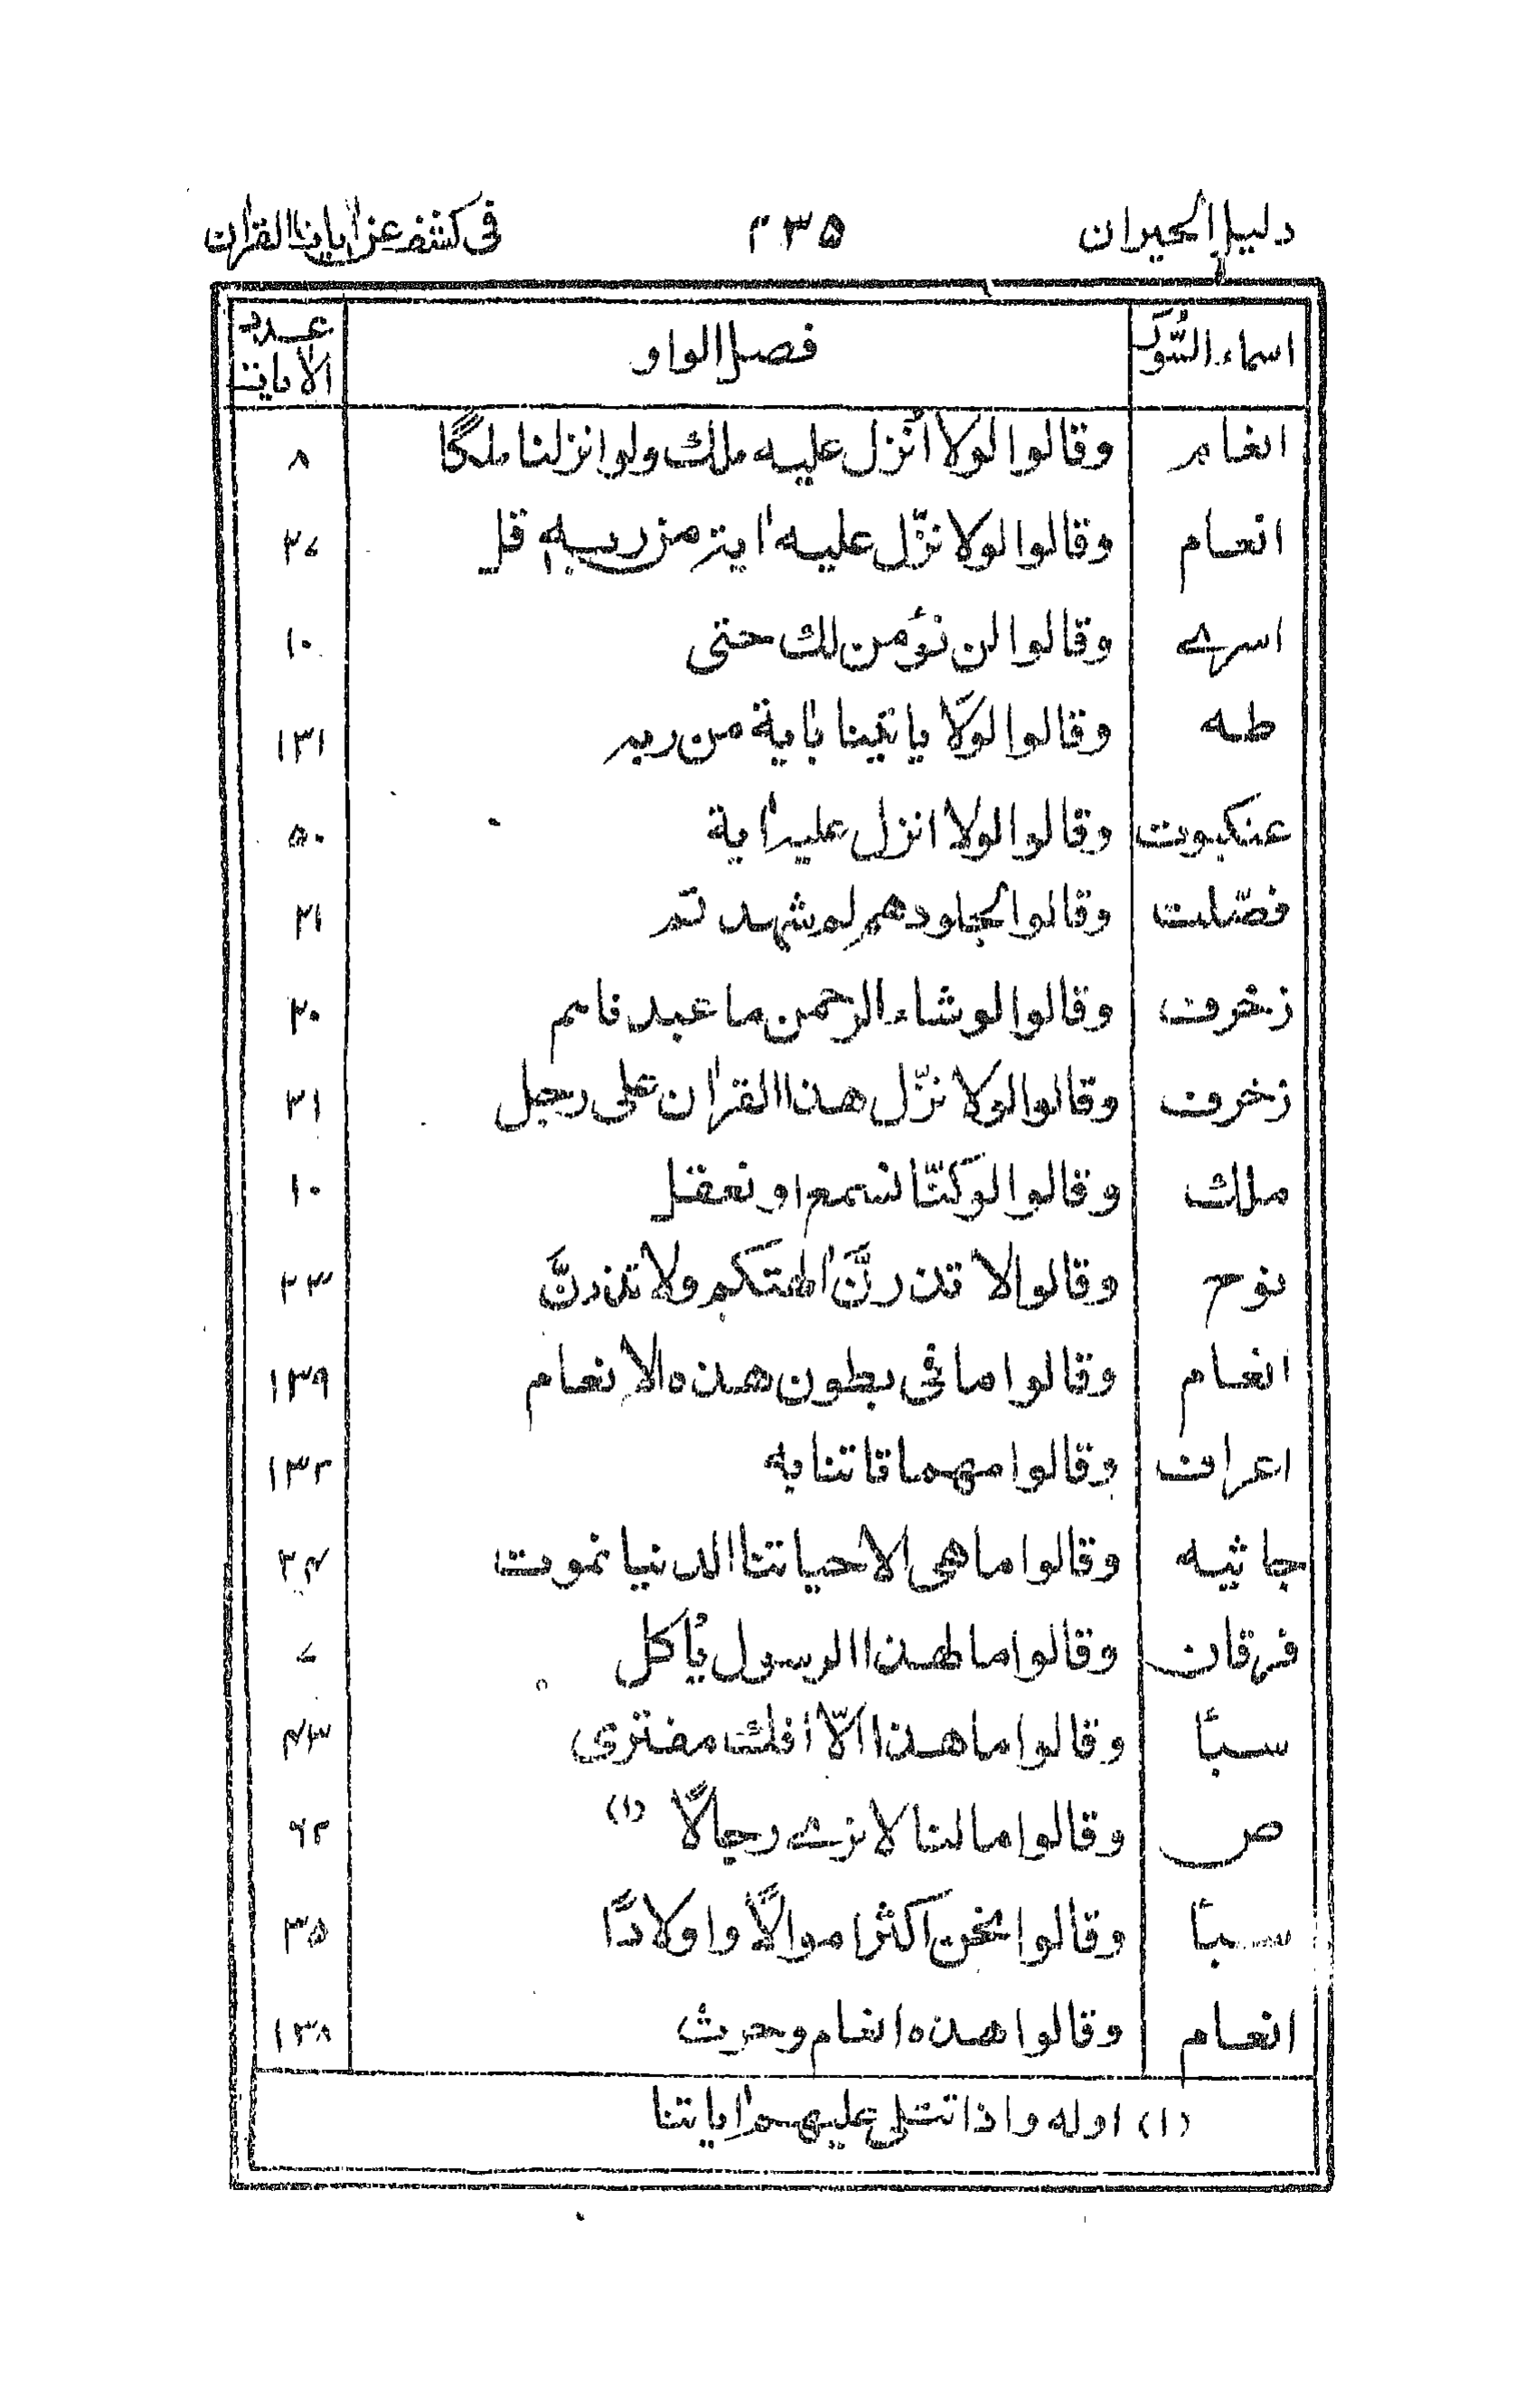 دليل الحيران ٤٣٥ في كشف عن اٰيات القراٰن
اسماء السُّوَر فصل الواو عدد الاٰيات
انعام وقالوا لولا اُنزل عليه ملك ولو انزلنا ملكًا ٨
انعام وقالوا لولا نزّل عليه اٰية من ربه قل ٣٧
اسرے وقالوا لن نؤمن لك حتى ٩٠
طه وقالوا لولا ياتينا باٰية من ربه ١٣١
عنكبوت وقالوا لولا انزل عليه اٰية ٥٠
فصّلت وقالوا لجلودهم لم شهدتم ٢١
زخرف وقالوا لو شاء الرحمن ما عبدناهم ٢٠
زخرف وقالوا لولا نزّل هذا القراٰن على رجل ٣١
ملك وقالوا لو كنّا نسمع او نعقل ١٠
نوح وقالوا لا تذرنَّ اٰلهتكم ولا تذرنَّ ٢٣
انعام وقالوا ما في بطون هذه الانعام ١٣٩
اعراف وقالوا مهما تاتنا به ١٣٢
جاثيه وقالوا ما هي الا حياتنا الدنيا نموت ٢٤
فرقان وقالوا مال هذا الرسول يأكل ٧
سبأ وقالوا ما هذا الّا افك مفترى ٤٣
ص وقالوا ما لنا لا نرے رجالًا (١) ٦٢
سبأ وقالوا نحن اكثر اموالًا واولادًا ٣٥
انعام وقالوا هذه انعام وحرث ١٣٨
(١) اوله واذا تتلى عليهم اٰياتنا